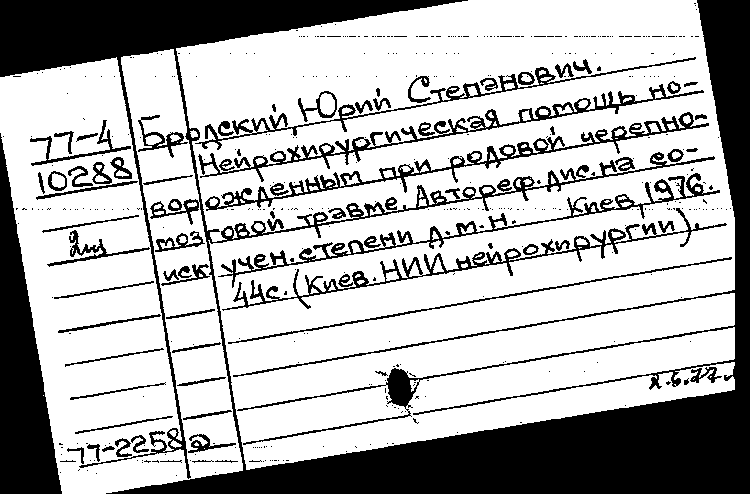 77-4
10288
Бродский, Юрий Степанович.
Нейрохирургическая помощь но-
ворожденным при родовой черепно-
мозговой травме. Автореф. дис. на со-
иск учен. степени д.м.н. Киев, 1976.
44с. (Киев. НИИ нейрохирургии).
77-2258